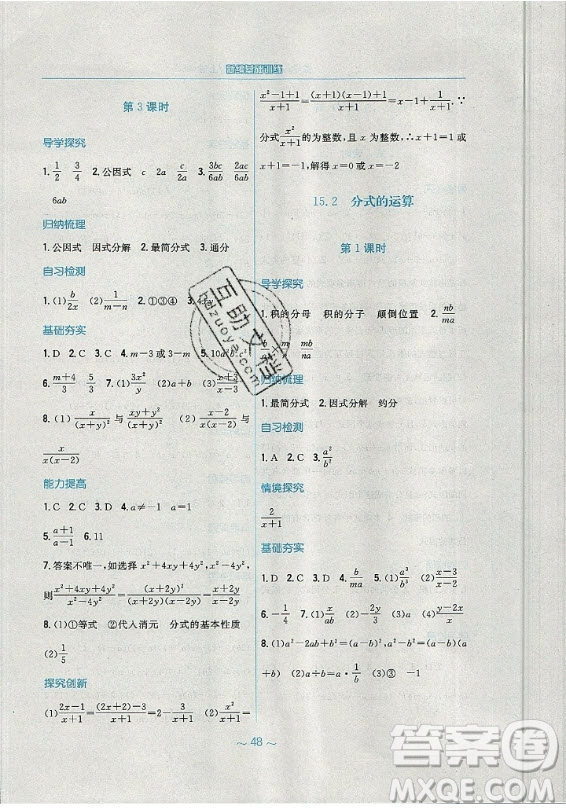 新编基础训练
第 3 课时
导学探究
1. 1/2 3/4 2. 公因式 c 2a c/2a 3. 3bc/6ab 2ac/6ab
6ab
归纳梳理
1. 公因式 因式分解 2. 最简分式 3. 通分
自习检测
1. (1) b/2x (2) 1/(m-n) 2. ①③④ 3.
基础夯实
1. D 2. C 3. C 4. m=3或m=1 5.
6. (m+4)/3 5/3 7. (1) 3x²/y (2) a+b (3)
8. (1) x/(x+y)² 与 (xy+y²)/(x+y)² (2)
x/(x(x-2))
能力提高
1. C 2. D 3. C 4. a≠-1 a=1
5. (a+1)/(a-1) 6. 11
7. 答案不唯一,如选择 x²+4xy+4y², x²-4y²,
则 (x²+4xy+4y²)/(x²-4y²)=(x+2y)²/((x+2y)(x-2y))=(x+2y)/(x-2y)
8. (1)①等式 ②代入消元 分式的基本性质
(2) 1/5
探究创新
(1) (2x-1)/(x+1)=(2x+2-3)/(x+1)=2-3/(x+1) (2) x²/(x+1)=
(x²-1+1)/(x+1)=(x²-1)/(x+1)+1/(x+1)=x-1+1/(x+1). ∵
分式 x²/(x+1) 的为整数,且 x 为整数,∴
x+1=±1,解得 x=0或x=-2
15.2 分式的运算
第 1 课时
导学探究
1. 积的分母 积的分子 颠倒位置 2. nb/ma
b/ma mb/na
归纳梳理
1. 最简分式 2. 因式分解 约分
自习检测
1. A 2. C 3. a²/b²
情境探究
2/(x+1)
基础夯实
1. D 2. C 3. D 4. b/ma 5. (1) a³/b³ (2) (x-3)/(x-2)
6. -1/4 7. (1) -2/3y (2) x/(x-3) (3) 4 (4) (y-x)/(y+2x)
8. (1)a²-2ab+b²=(a-b)², a²-b²=(a+b)
(a-b) (2)a÷b (3)③ -1
~ 48 ~
互助文档
hdzuowen.com
答案圈
MXQE.COM